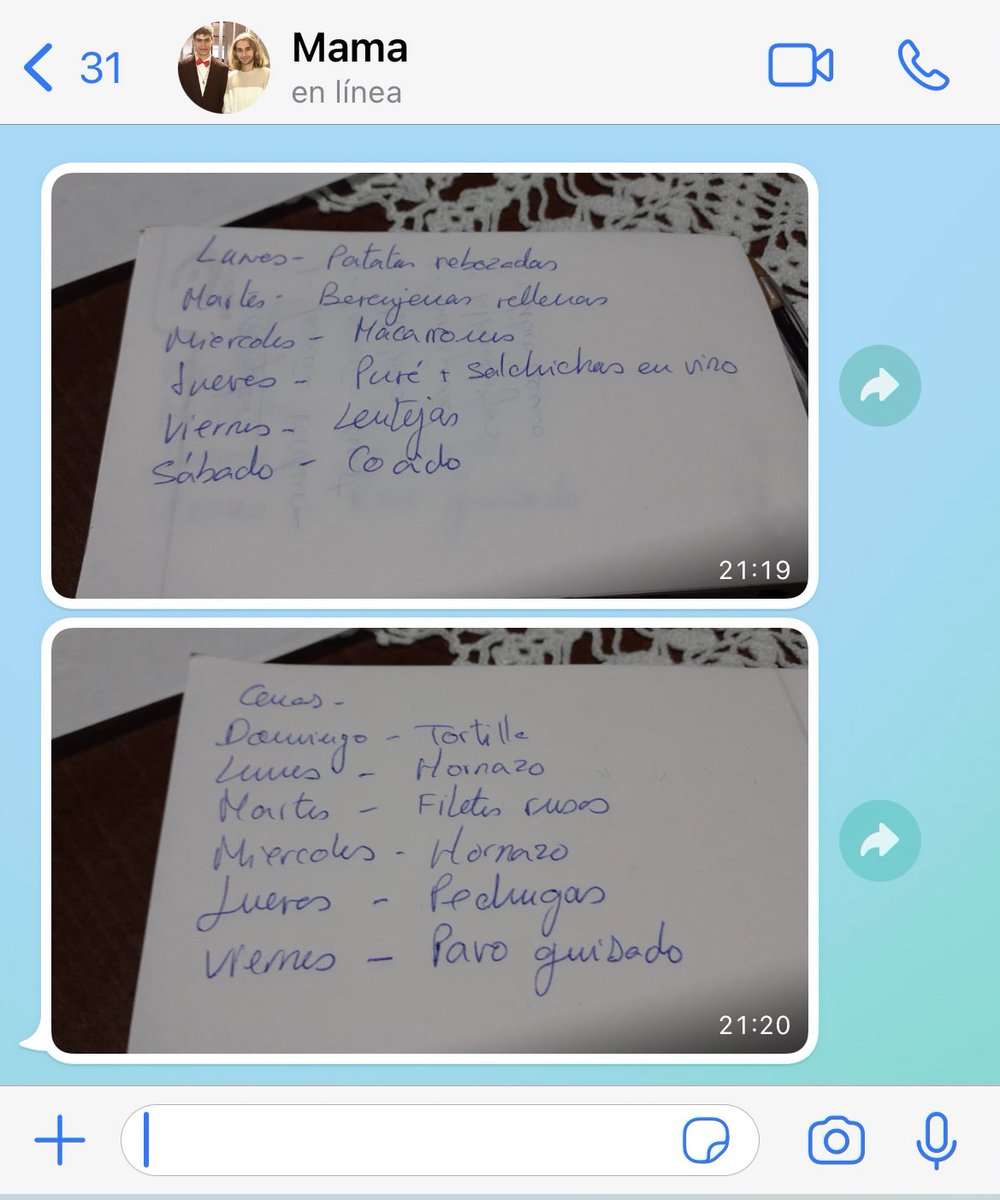 31
Mama
en línea
Lunes - Patatas rebozadas
Martes - Berenjenas rellenas
Miercoles - Macarrones
Jueves - Puré + Salchichas en vino
Viernes - Lentejas
Sábado - Cocido
21:19
Cenas -
Domingo - Tortilla
Lunes - Hornazo
Martes - Filetes rusos
Miercoles - Hornazo
Jueves - Pechugas
Viernes - Pavo guisado
21:20